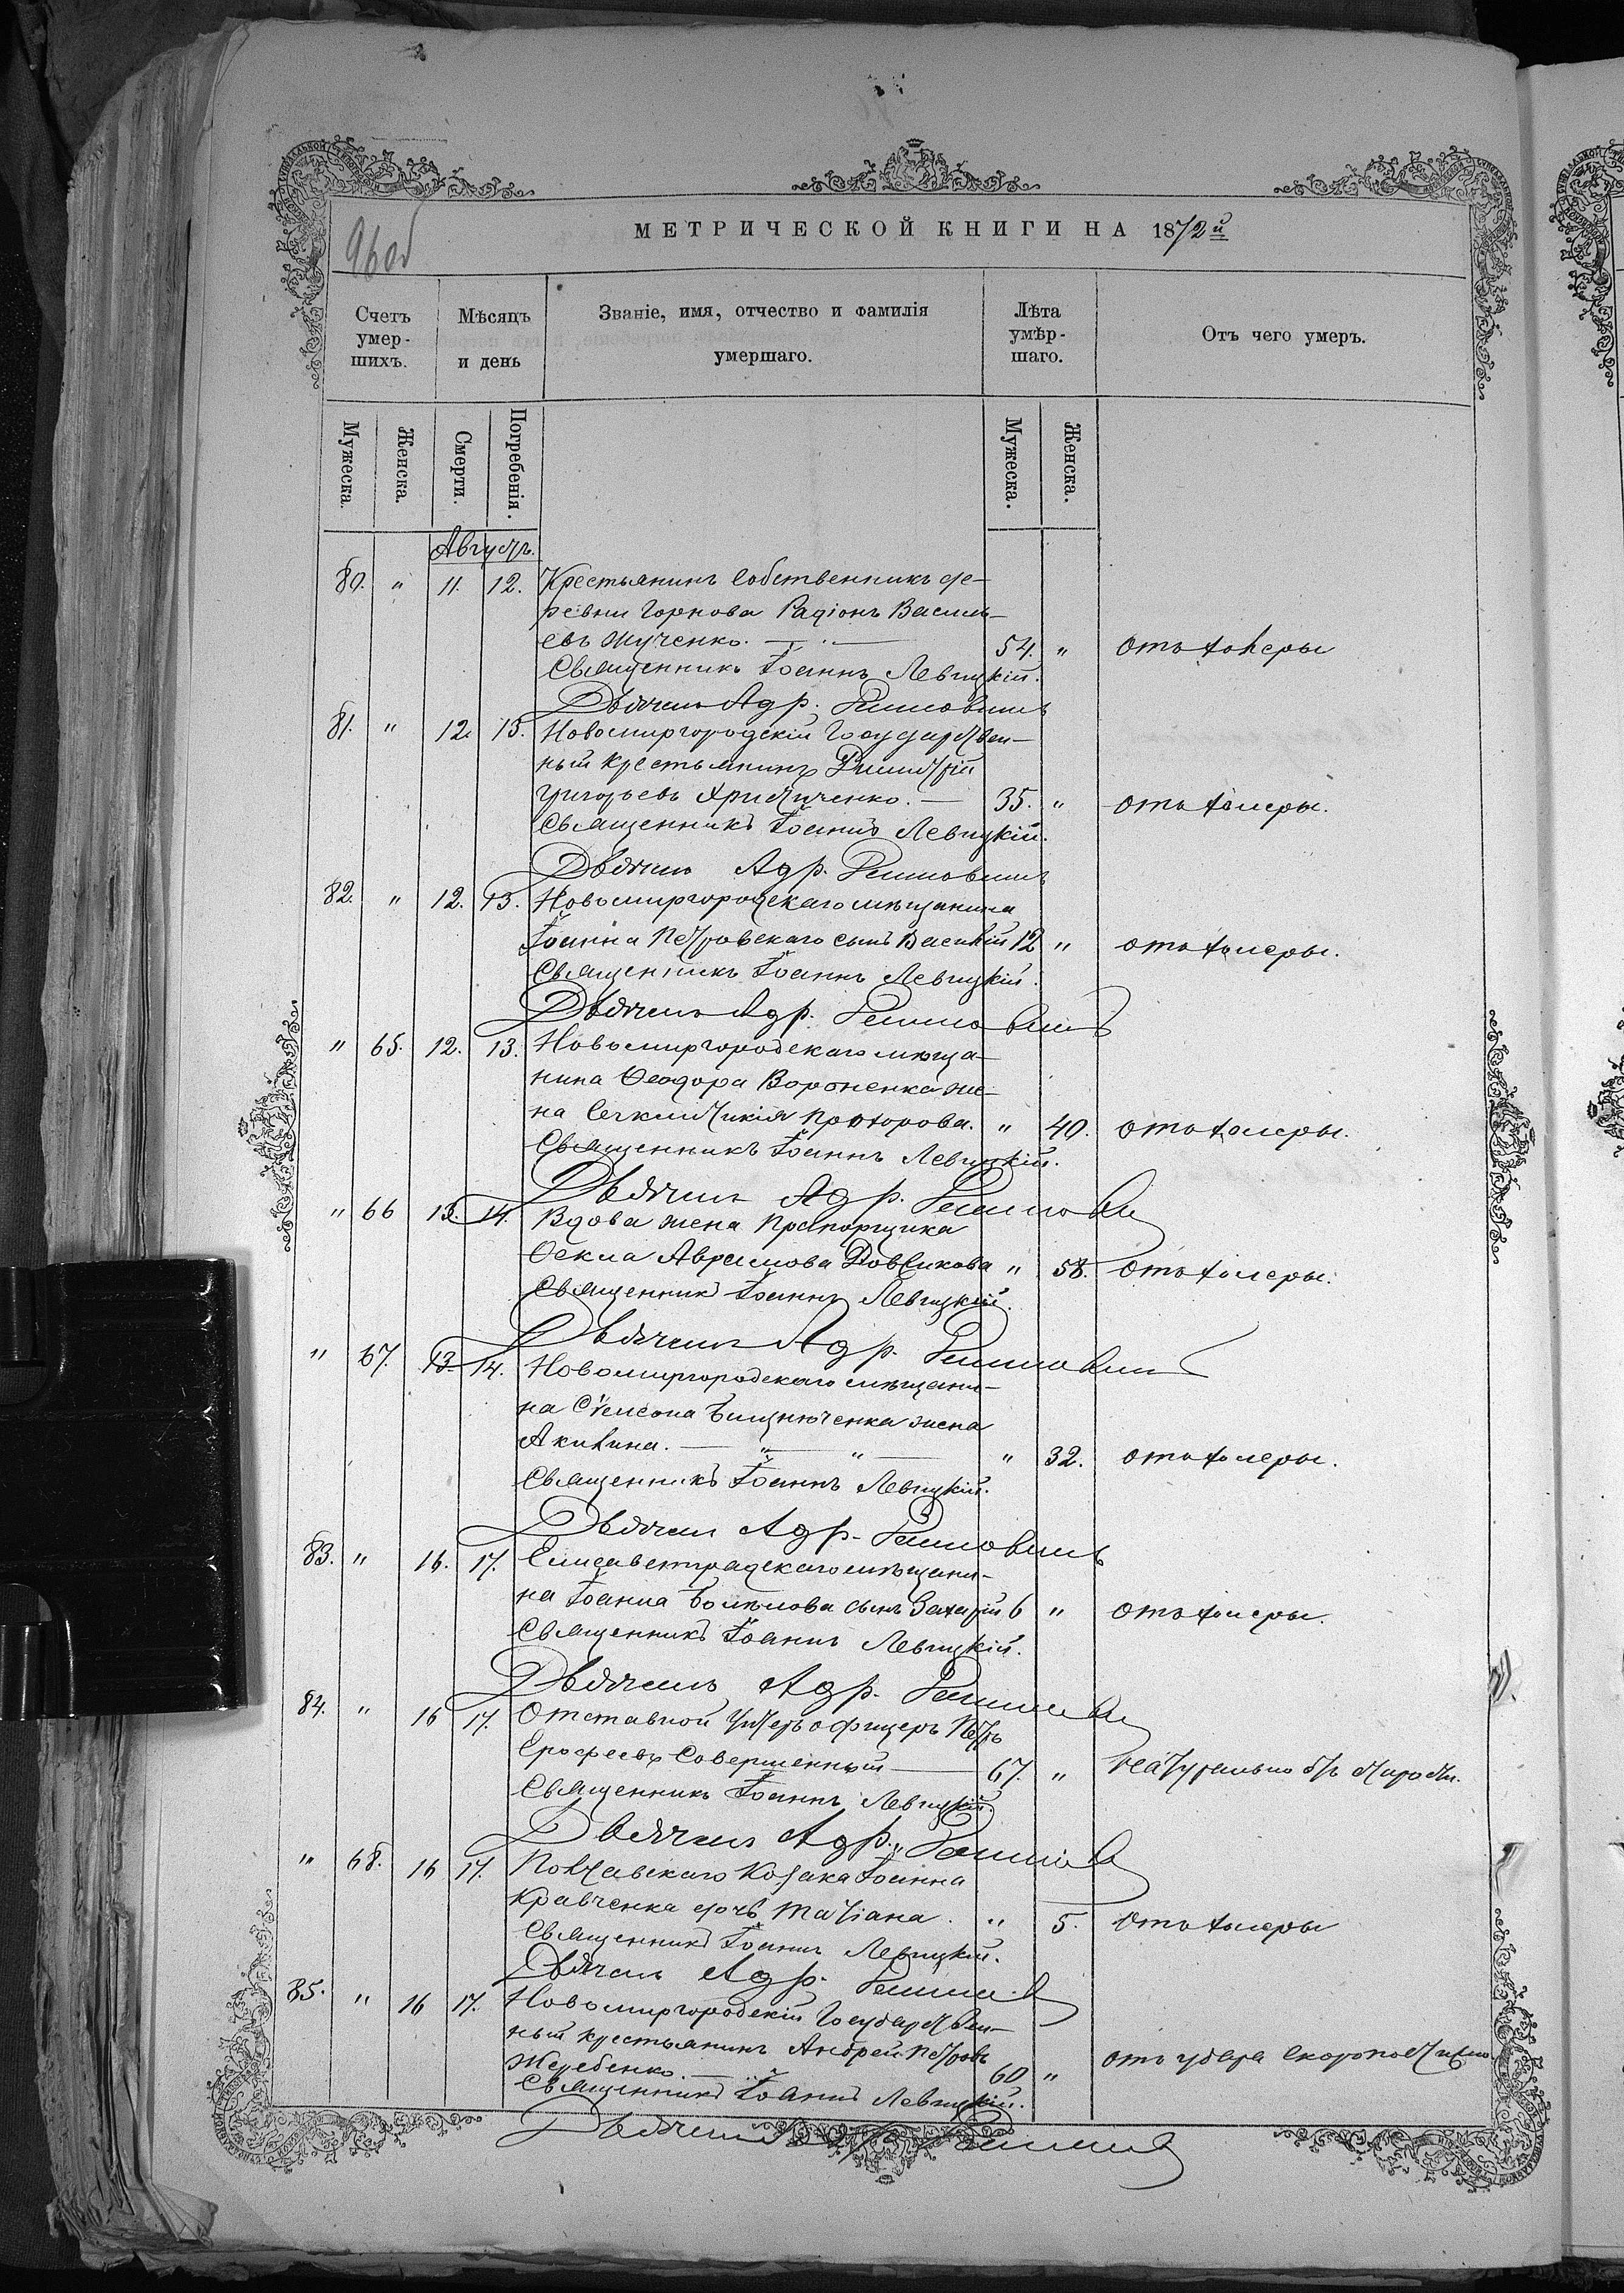 96об
МЕТРИЧЕСКОЙ КНИГИ НА 1872й
Счетъ умер-шихъ. Мѣсяцъ и день Званіе, имя, отчество и фамилія умершаго. Лѣта умѣр-шаго. Отъ чего умеръ.
Мужеска. Женска. Смерти. Погребенія. Мужеска. Женска.
Августъ.
80. " 11. 12. Крестьянинъ собственникъ де-
ревни Горнова Радіонъ Василь-
евъ Жученко. 54. " отъ холеры
Священникъ Іоаннъ Левицкій.
Дьячекъ Адр.
81. " 12. 13. Новомиргородскій Государствен-
ный крестьянинъ Димитрій
Григорьевъ Христиченко. 35. " отъ холеры.
Священникъ Іоаннъ Левицкій.
Дьячекъ Адр.
82. " 12. 13. Новомиргородскаго мѣщанина
Іоанна Петровскаго сынъ Василій 12 " отъ холеры.
Священникъ Іоаннъ Левицкій.
Дьячекъ Адр.
" 65. 12. 13. Новомиргородскаго мѣща-
нина Ѳеодора Вороненка же-
на Секлитикія Прохорова. " 40. отъ холеры.
Священникъ Іоаннъ Левицкій.
Дьячекъ Адр.
" 66 13. 14. Вдова жена Прапорщика
Ѳекла Аврамова " 58. отъ холеры.
Священникъ Іоаннъ Левицкій.
Дьячекъ Адр.
" 67. 13 14. Новомиргородскаго мѣщани-
на Сѵмеона жена
Акилина. " " " 32. отъ холеры.
Священникъ Іоаннъ Левицкій.
Дьячекъ Адр.
83. " 16. 17. Елисаветградскаго мѣщани-
на Іоанна сынъ Захарій 6 " отъ холеры.
Священникъ Іоаннъ Левицкій.
Дьячекъ Адр.
84. " 16 17. Отставной Унтеръ офицеръ Петръ
Ерофеевъ Совершенный 67. " натурально отъ старости.
Священникъ Іоаннъ Левицкій.
Дьячекъ Адр.
" 68. 16 17. Полтавскаго Козака Іоанна
Кравченка дочь Татіана. " 5. отъ холеры
Священникъ Іоаннъ Левицкій.
Дьячекъ Адр.
85. " 16 17. Новомиргородскій Государствен-
ный крестьянинъ Андрей Петровъ
Жеребенко. 60 " отъ удара скоропостижно
Священникъ Іоаннъ Левицкій.
Дьячекъ